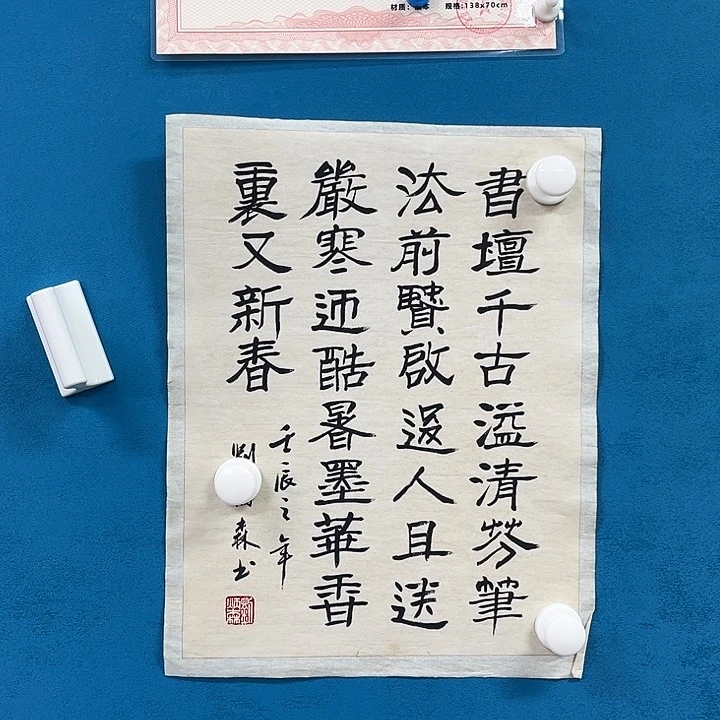 规格:138x70cm
書壇千古溢清芬筆
法前賢啟後人且送
嚴寒迎酷暑墨華香
裏又新春
壬辰之年
劉森书